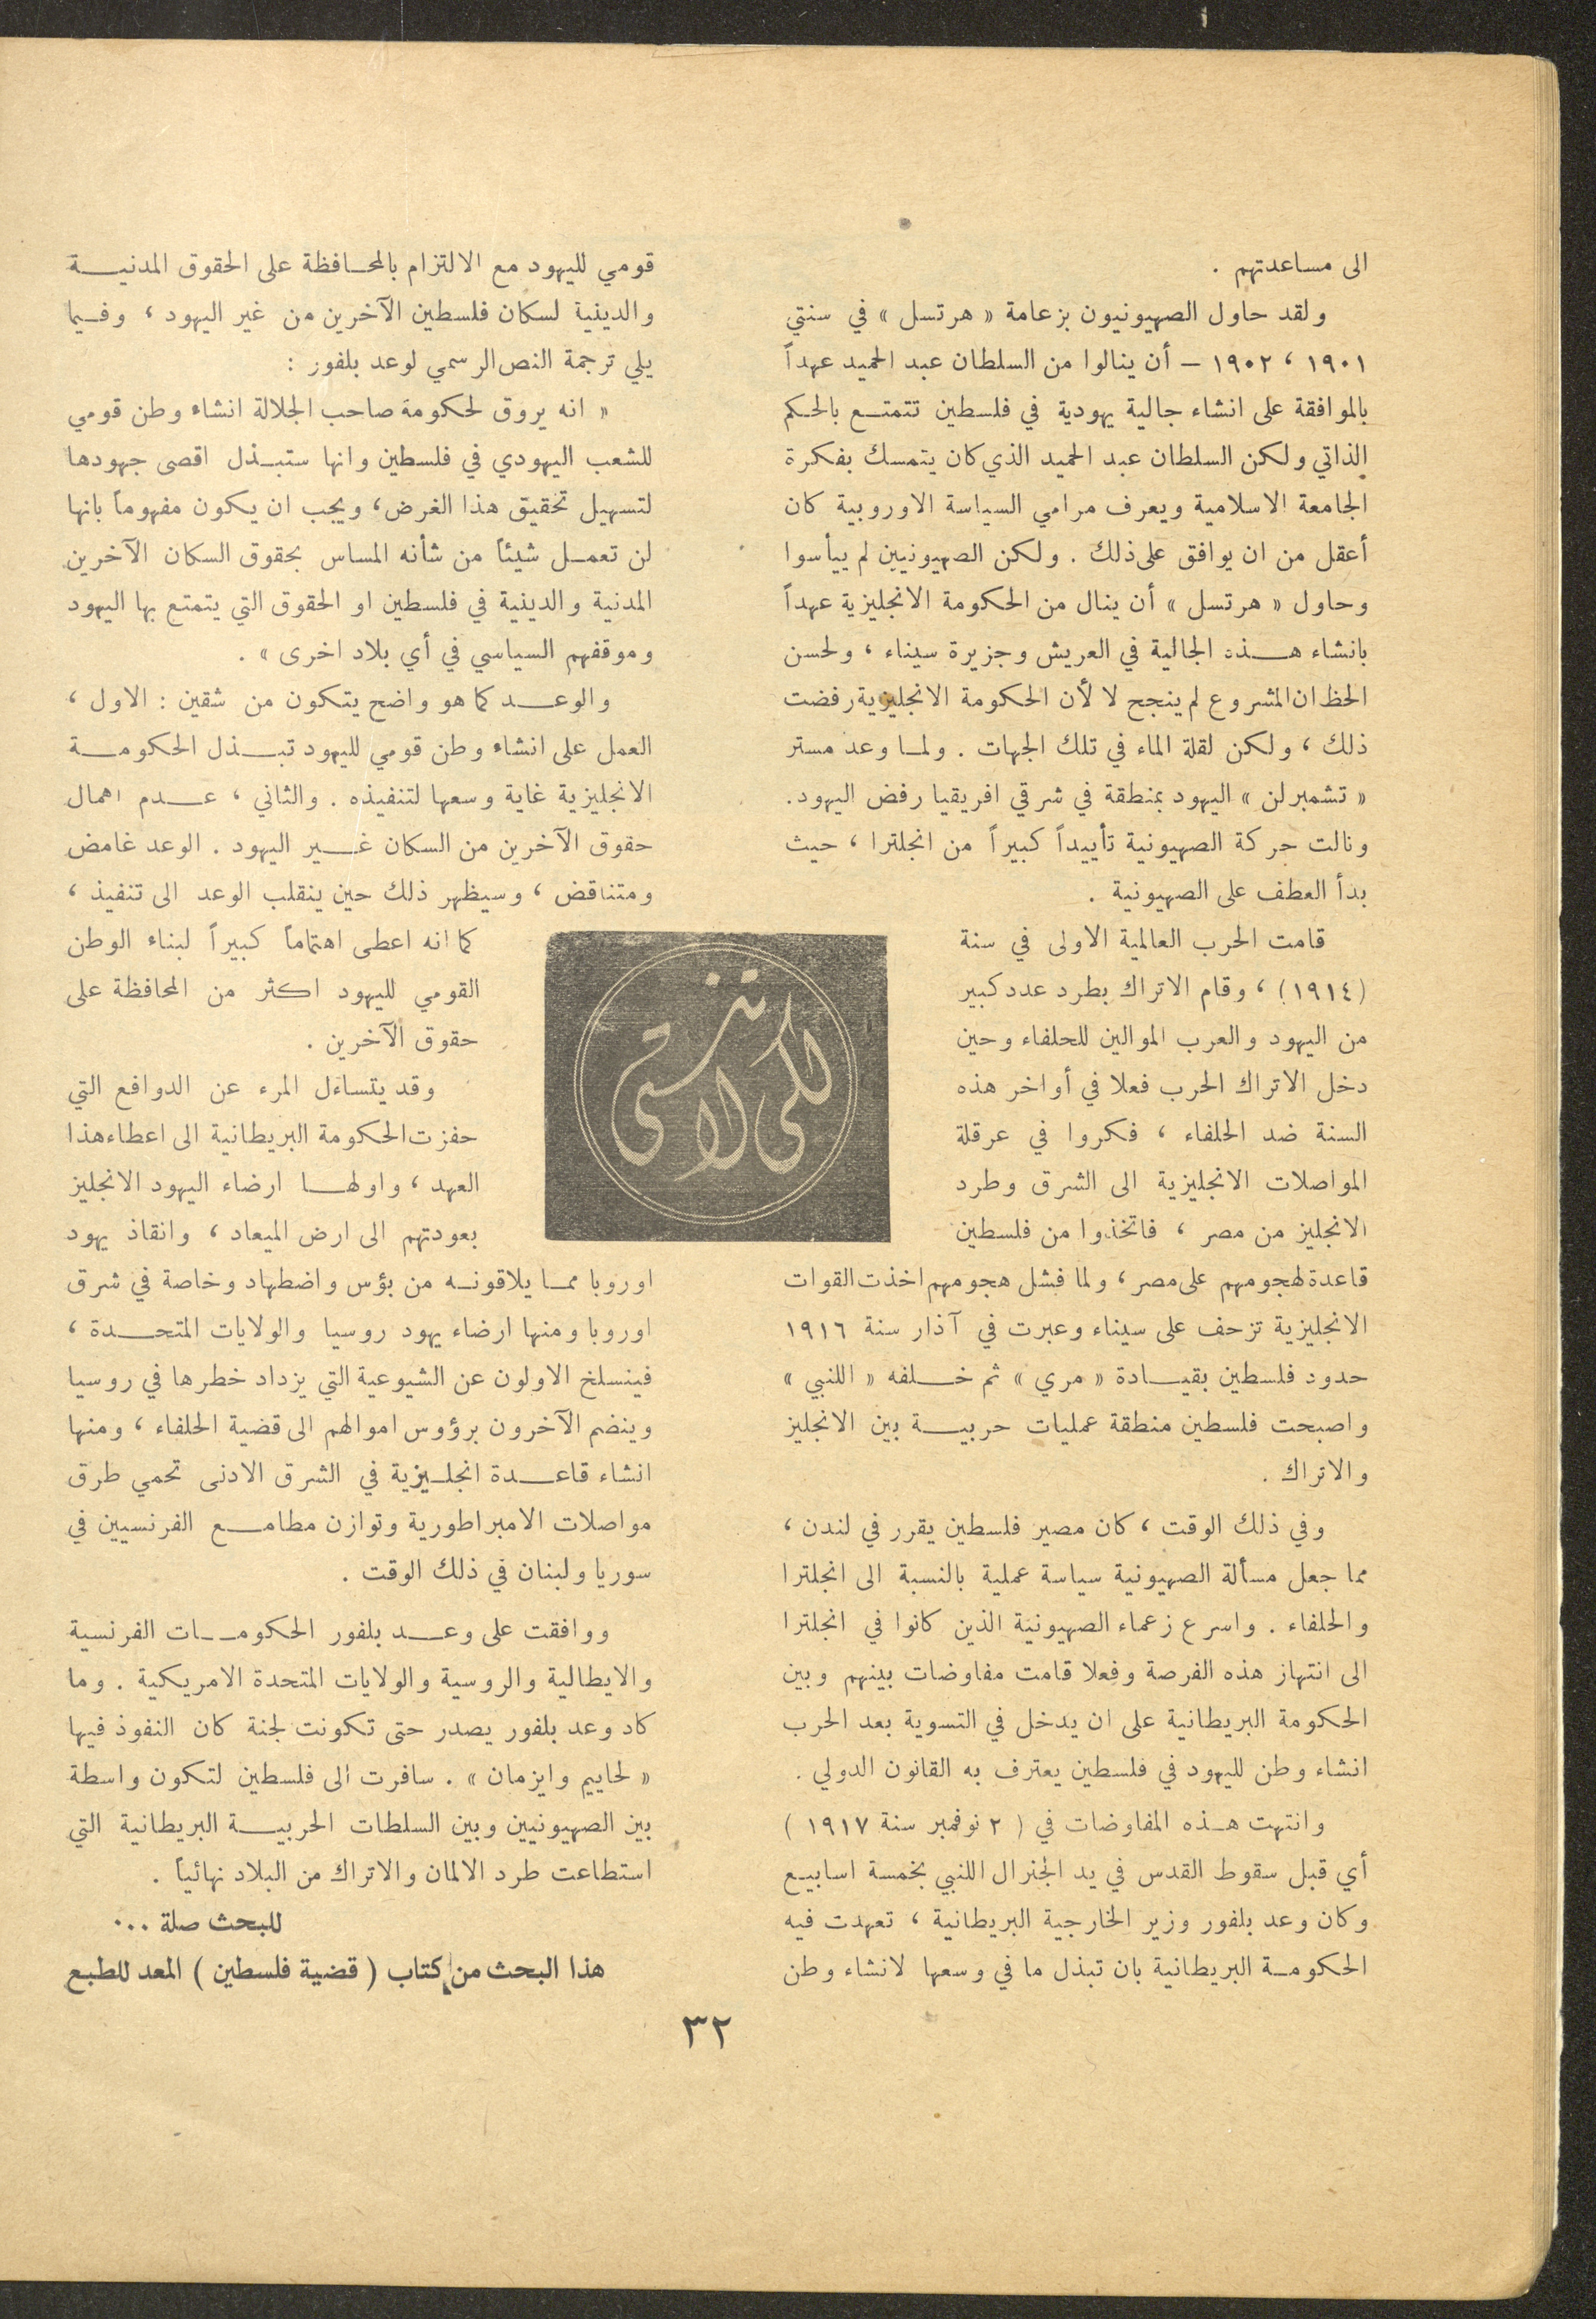 الى مساعدتهم .
ولقد حاول الصهيونيون بزعامة « هرتسل » في سنتي
١٩٠١ ، ١٩٠٢ – أن ينالوا من السلطان عبد الحميد عهداً
بالموافقة على انشاء جالية يهودية في فلسطين تتمتع بالحكم
الذاتي ولكن السلطان عبد الحميد الذي كان يتمسك بفكرة
الجامعة الاسلامية ويعرف مرامي السياسة الاوروبية كان
أعقل من ان يوافق على ذلك . ولكن الصهيونيين لم ييأسوا
وحاول « هرتسل » أن ينال من الحكومة الانجليزية عهداً
بانشاء هذه الجالية في العريش وجزيرة سيناء ، ولحسن
الحظ ان المشروع لم ينجح لا لأن الحكومة الانجليزية رفضت
ذلك ، ولكن لقلة الماء في تلك الجهات . ولما وعد مستر
« تشمبرلن » اليهود بمنطقة في شرقي افريقيا رفض اليهود.
ونالت حركة الصهيونية تأييداً كبيراً من انجلترا ، حيث
بدأ العطف على الصهيونية .
قامت الحرب العالمية الاولى في سنة
(١٩١٤) ، وقام الاتراك بطرد عدد كبير
من اليهود والعرب الموالين للحلفاء وحين
دخل الاتراك الحرب فعلا في أواخر هذه
السنة ضد الحلفاء ، فكروا في عرقلة
المواصلات الانجليزية الى الشرق وطرد
الانجليز من مصر ، فاتخذوا من فلسطين
قاعدة لهجومهم على مصر ، ولما فشل هجومهم اخذت القوات
الانجليزية تزحف على سيناء وعبرت في آذار سنة ١٩١٦
حدود فلسطين بقيادة « مري » ثم خلفه « اللنبي »
واصبحت فلسطين منطقة عمليات حربية بين الانجليز
والاتراك .
وفي ذلك الوقت ، كان مصير فلسطين يقرر في لندن ،
مما جعل مسألة الصهيونية سياسة عملية بالنسبة الى انجلترا
والحلفاء . واسرع زعماء الصهيونية الذين كانوا في انجلترا
الى انتهاز هذه الفرصة وفعلا قامت مفاوضات بينهم وبين
الحكومة البريطانية على ان يدخل في التسوية بعد الحرب
انشاء وطن لليهود في فلسطين يعترف به القانون الدولي .
وانتهت هذه المفاوضات في ( ٢ نوفمبر سنة ١٩١٧ )
أي قبل سقوط القدس في يد الجنرال اللنبي بخمسة اسابيع
وكان وعد بلفور وزير الخارجية البريطانية ، تعهدت فيه
الحكومة البريطانية بان تبذل ما في وسعها لانشاء وطن
قومي لليهود مع الالتزام بالمحافظة على الحقوق المدنية
والدينية لسكان فلسطين الآخرين من غير اليهود ، وفيما
يلي ترجمة النص الرسمي لوعد بلفور :
« انه يروق لحكومة صاحب الجلالة انشاء وطن قومي
للشعب اليهودي في فلسطين وانها ستبذل اقصى جهودها
لتسهيل تحقيق هذا الغرض ، ويجب ان يكون مفهوماً بانها
لن تعمل شيئاً من شأنه المساس بحقوق السكان الآخرين
المدنية والدينية في فلسطين او الحقوق التي يتمتع بها اليهود
وموقفهم السياسي في أي بلاد اخرى » .
والوعد كما هو واضح يتكون من شقين : الاول ،
العمل على انشاء وطن قومي لليهود تبذل الحكومة
الانجليزية غاية وسعها لتنفيذه . والثاني ، عدم اهمال
حقوق الآخرين من السكان غير اليهود . الوعد غامض
ومتناقض ، وسيظهر ذلك حين ينقلب الوعد الى تنفيذ ،
كما انه اعطى اهتماماً كبيراً لبناء الوطن
القومي لليهود اكثر من المحافظة على
حقوق الآخرين .
وقد يتساءل المرء عن الدوافع التي
حفزت الحكومة البريطانية الى اعطاء هذا
العهد ، واولها ارضاء اليهود الانجليز
بعودتهم الى ارض الميعاد ، وانقاذ يهود
اوروبا مما يلاقونه من بؤس واضطهاد وخاصة في شرق
اوروبا ومنها ارضاء يهود روسيا والولايات المتحدة ،
فينسلخ الاولون عن الشيوعية التي يزداد خطرها في روسيا
وينضم الآخرون برؤوس اموالهم الى قضية الحلفاء ، ومنها
انشاء قاعدة انجليزية في الشرق الادنى تحمي طرق
مواصلات الامبراطورية وتوازن مطامع الفرنسيين في
سوريا ولبنان في ذلك الوقت .
ووافقت على وعد بلفور الحكومات الفرنسية
والايطالية والروسية والولايات المتحدة الامريكية . وما
كاد وعد بلفور يصدر حتى تكونت لجنة كان النفوذ فيها
« لحاييم وايزمان » . سافرت الى فلسطين لتكون واسطة
بين الصهيونيين وبين السلطات الحربية البريطانية التي
استطاعت طرد الالمان والاتراك من البلاد نهائياً .
للبحث صلة ...
هذا البحث من كتاب ( قضية فلسطين ) المعد للطبع
لكي لا ننسى
٣٢